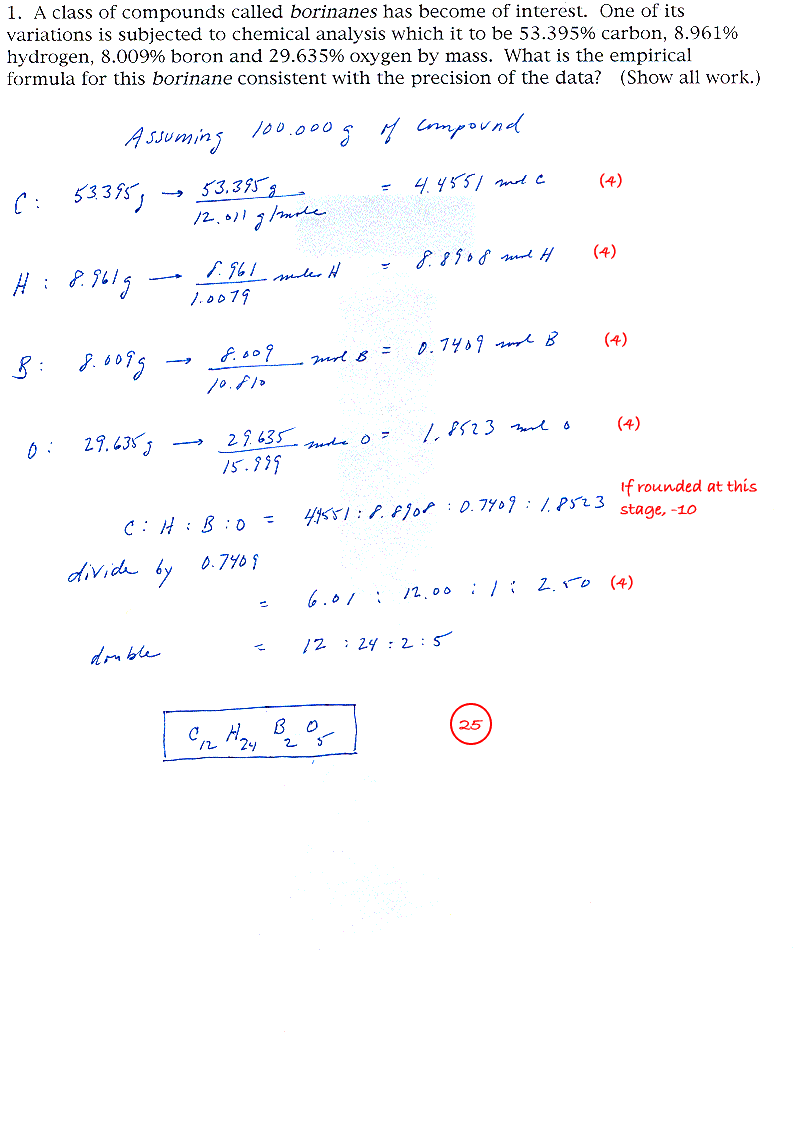 1. A class of compounds called borinanes has become of interest. One of its
variations is subjected to chemical analysis which it to be 53.395% carbon, 8.961%
hydrogen, 8.009% boron and 29.635% oxygen by mass. What is the empirical
formula for this borinane consistent with the precision of the data? (Show all work.)
Assuming 100.000 g of compound
C : 53.395 g → 53.395 g / 12.011 g/mole = 4.4551 mol C (4)
H : 8.961 g → 8.961 / 1.0079 moles H = 8.8908 mol H (4)
B : 8.009 g → 8.009 / 10.810 mol B = 0.7409 mol B (4)
O : 29.635 g → 29.635 / 15.999 moles O = 1.8523 mol O (4)
If rounded at this
C : H : B : O = 4.4551 : 8.8908 : 0.7409 : 1.8523 stage, -10
divide by 0.7409
= 6.01 : 12.00 : 1 : 2.50 (4)
double = 12 : 24 : 2 : 5
C12 H24 B2 O5 25